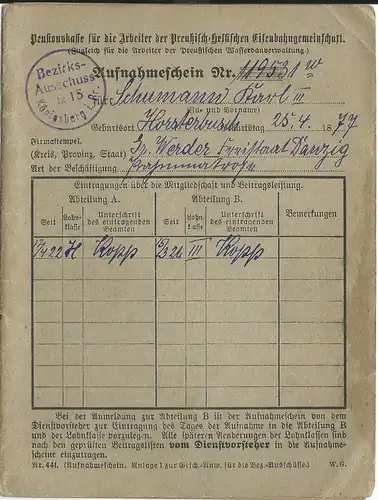 Pensionskasse für die Arbeiter der Preußisch-Hessischen Eisenbahngemeinschaft.
(Zugleich für die Arbeiter der Preußischen Wasserbauverwaltung.)
Bezirks-
Ausschuss
15
Königsberg i. Pr.
Aufnahmeschein Nr. 119531
für Schumann Karl III
(Zu- und Vorname)
Geburtsort Geburtstag 25. 4. 1877
Firmastempel.
(Kreis, Provinz, Staat) Gr. Werder Freistaat Danzig
Art der Beschäftigung
Eintragungen über die Mitgliedschaft und Beitragsleistung.
Abteilung A. Abteilung B. Bemerkungen
Seit Lohnklasse Unterschrift des eintragenden Beamten Seit Lohnklasse Unterschrift des eintragenden Beamten
Kopp III Kopp
Bei der Anmeldung zur Abteilung B ist der Aufnahmeschein von dem
Dienstvorsteher zur Eintragung des Tages der Aufnahme in die Abteilung B
und der Lohnklasse vorzulegen. Alle späteren Aenderungen der Lohnklassen sind
nach den geprüften Beitragslisten vom Dienstvorsteher in die Aufnahme-
scheine einzutragen.
Nr. 441. (Aufnahmeschein. Anlage 1 zur Gesch.-Anw. für die Bez.-Ausschüsse.) W. G.